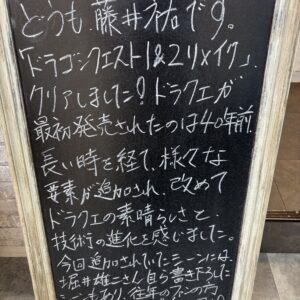 どうも、藤井祐です。
「ドラゴンクエスト1&2リメイク」、
クリアしました！ドラクエが
最初発売されたのは40年前。
長い時を経て、様々な
要素が追加され、改めて
ドラクエの素晴らしさと、
技術の進化を感じました。
今回追加されていたシーンには、
堀井雄二さん自ら書き下ろした
シーンもあり、往年のファンの方